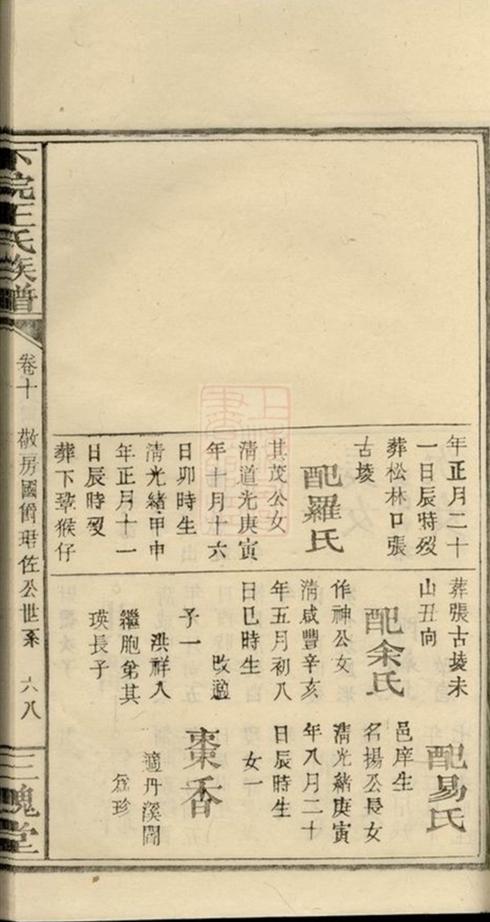 年正月二十
一日辰時歿
葬松林口張
古塝
配羅氏
其茂公女
清道光庚寅
年十月十六
日卯時生
清光緒甲申
年正月十一
日辰時歿
葬下䃮猴仔
葬張古塝未
山丑向
配余氏
作神公女
清咸豐辛亥
年五月初八
日巳時生
改適
子一
洪祥入
繼胞弟其
瑛長子
配易氏
邑庠生
名揚公長女
清光緒庚寅
年八月二十
日辰時生
女一
棗香
適丹溪閻
為珍
下院王氏族譜
卷十
敬房國爵珺佐公世系
六八
三槐堂